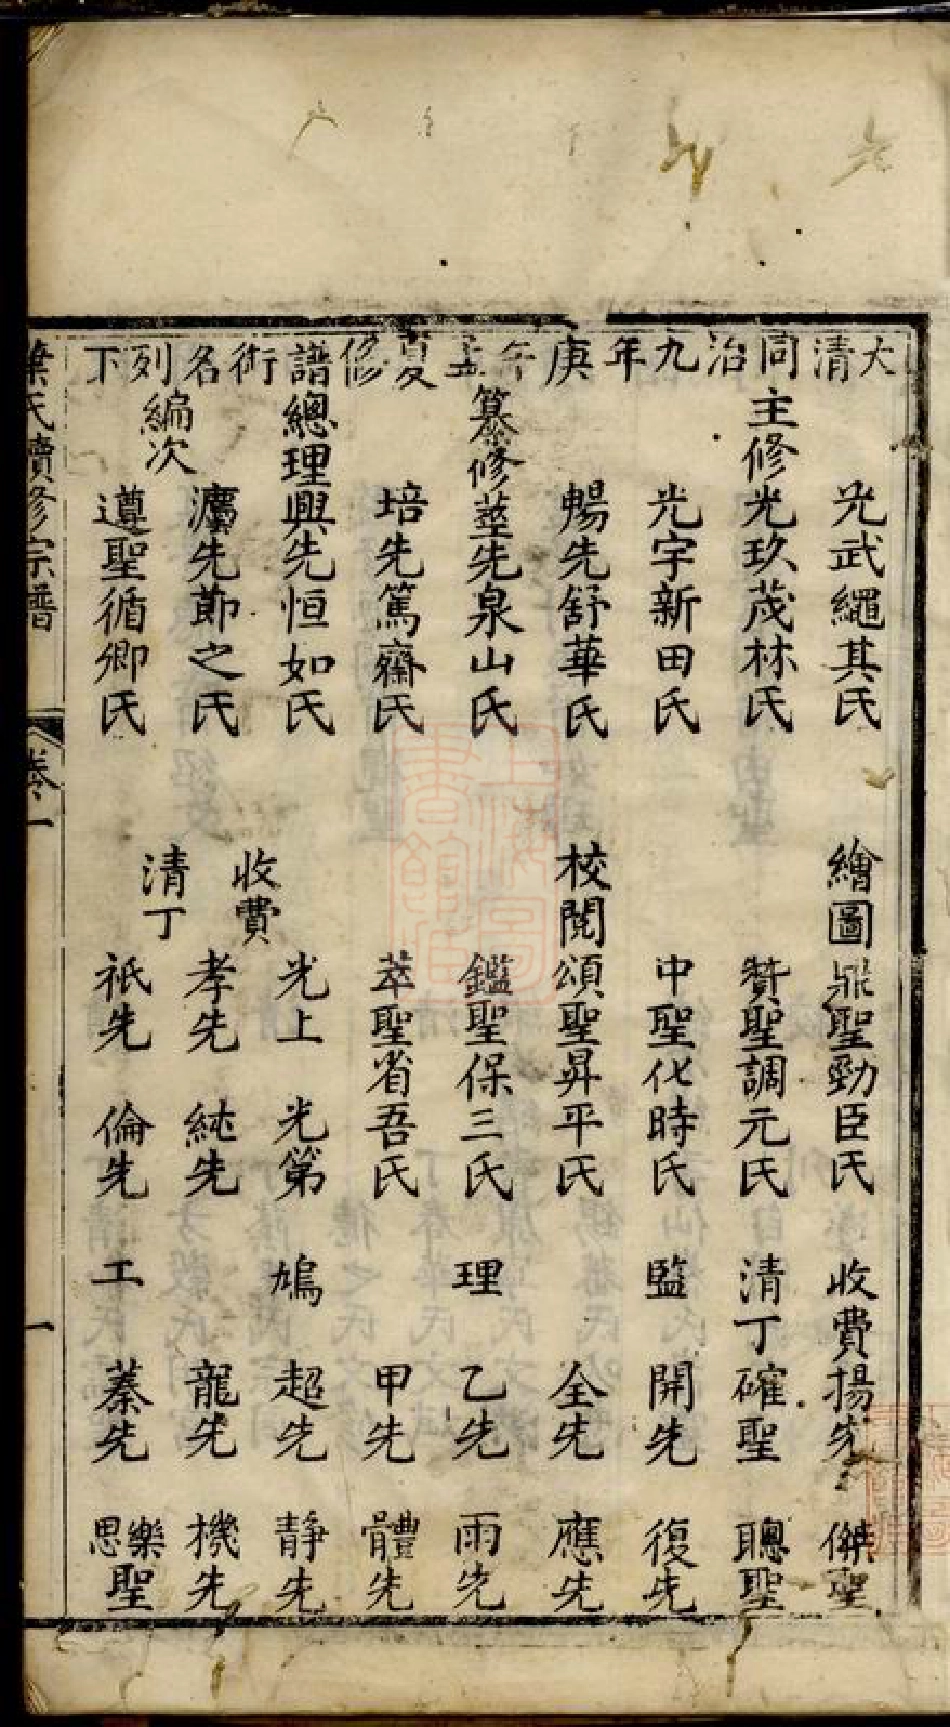 大清同治九年庚午孟夏修譜銜名列下
光武繩其氏 繪圖 鼎聖勁臣氏 收費 揚先 傑聖
主修 光玖茂林氏 贊聖調元氏 清丁 確聖 聰聖
光宇新田氏 中聖化時氏 監 開先 復先
暢先舒華氏 校閱 頌聖昇平氏 全先 應先
纂修 莖先泉山氏 鑑聖保三氏 理 乙先 雨先
培先篤齋氏 萃聖省吾氏 甲先 體先
總理 興先恒如氏 光上 光第 鳩 超先 靜先
收費
先節之氏 孝先 純先 龍先 機先
編次 清丁
遵聖循卿氏 祇先 倫先 工 蓁先 樂聖 思聖
葉氏續修宗譜 卷一 一
上海圖書館藏